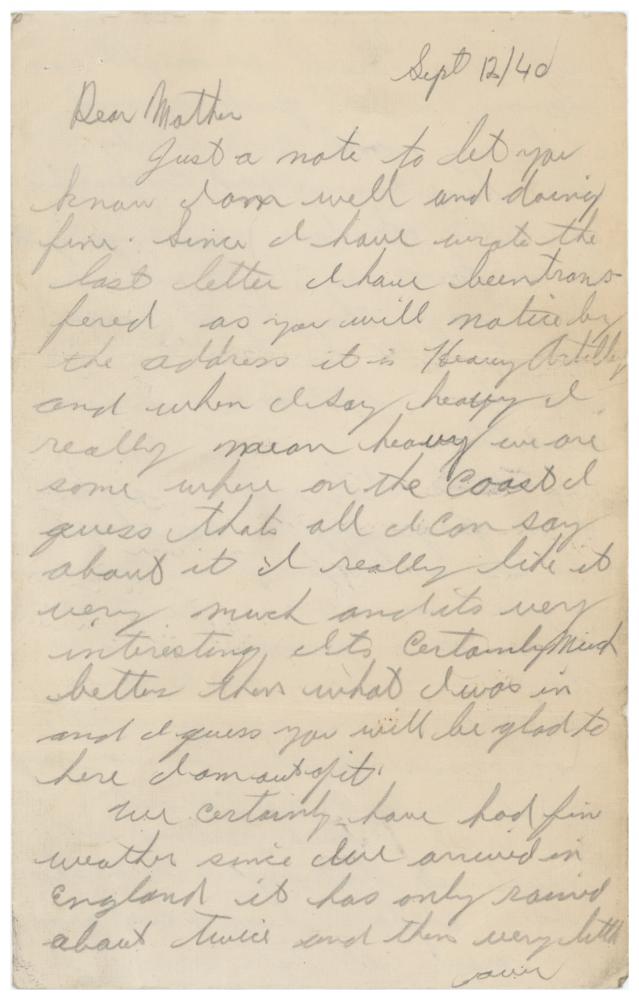 Sept 12/40
Dear Mother
Just a note to let you
know I am well and doing
fine. Since I have wrote the
last letter I have been trans-
fered as you will notice by
the address it is Heavy Artillry
and when I say heavy I
really mean heavy we are
some where on the coast I
guess thats all I can say
about it I really like it
very much and its very
interesting. Its certainly Much
better then what I was in
and I guess you will be glad to
here I am out of it.
We certainly have had fine
weather since we arrived in
England it has only rained
about twice and then very little
over